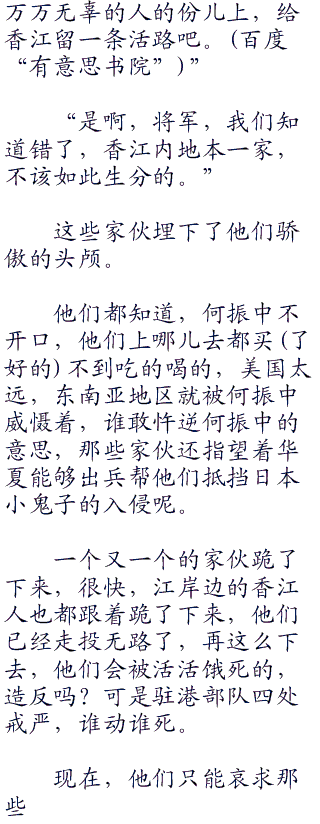 万万无辜的人的份儿上，给
香江留一条活路吧。(百度
“有意思书院”)”
“是啊，将军，我们知
道错了，香江内地本一家，
不该如此生分的。”
这些家伙埋下了他们骄
傲的头颅。
他们都知道，何振中不
开口，他们上哪儿去都买(了
好的)不到吃的喝的，美国太
远，东南亚地区就被何振中
威慑着，谁敢忤逆何振中的
意思，那些家伙还指望着华
夏能够出兵帮他们抵挡日本
小鬼子的入侵呢。
一个又一个的家伙跪了
下来，很快，江岸边的香江
人也都跟着跪了下来，他们
已经走投无路了，再这么下
去，他们会被活活饿死的，
造反吗？可是驻港部队四处
戒严，谁动谁死。
现在，他们只能哀求那
些